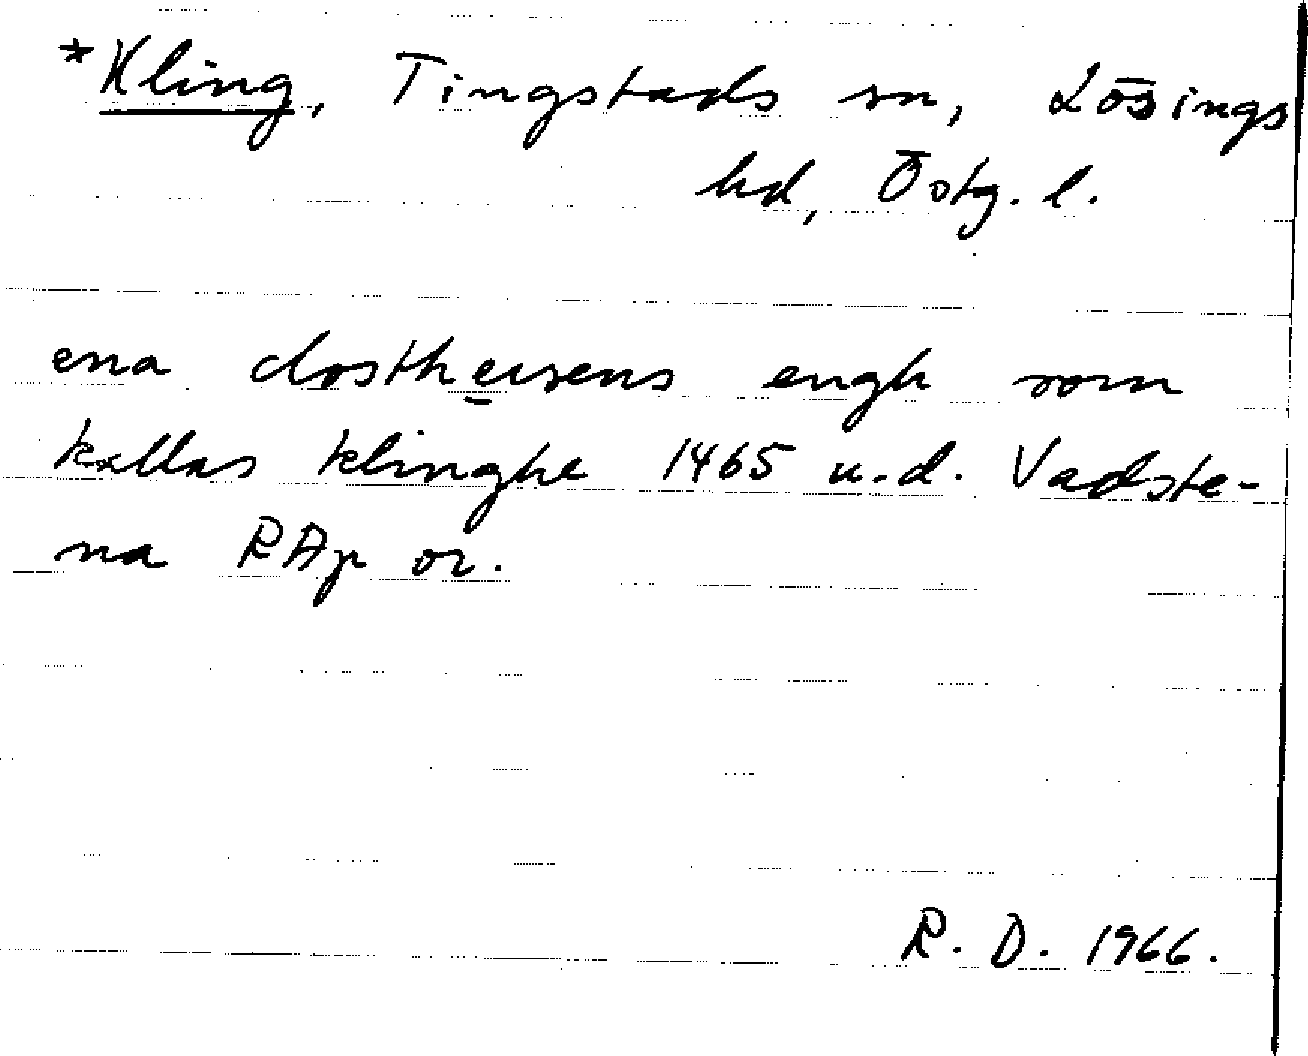 *Kling, Tingstads sn, Lösings
hd, Östg. l.
ena closthersens engh som
kallas klinghe 1465 u.d. Vadste-
na RAp or.
R. D. 1966.